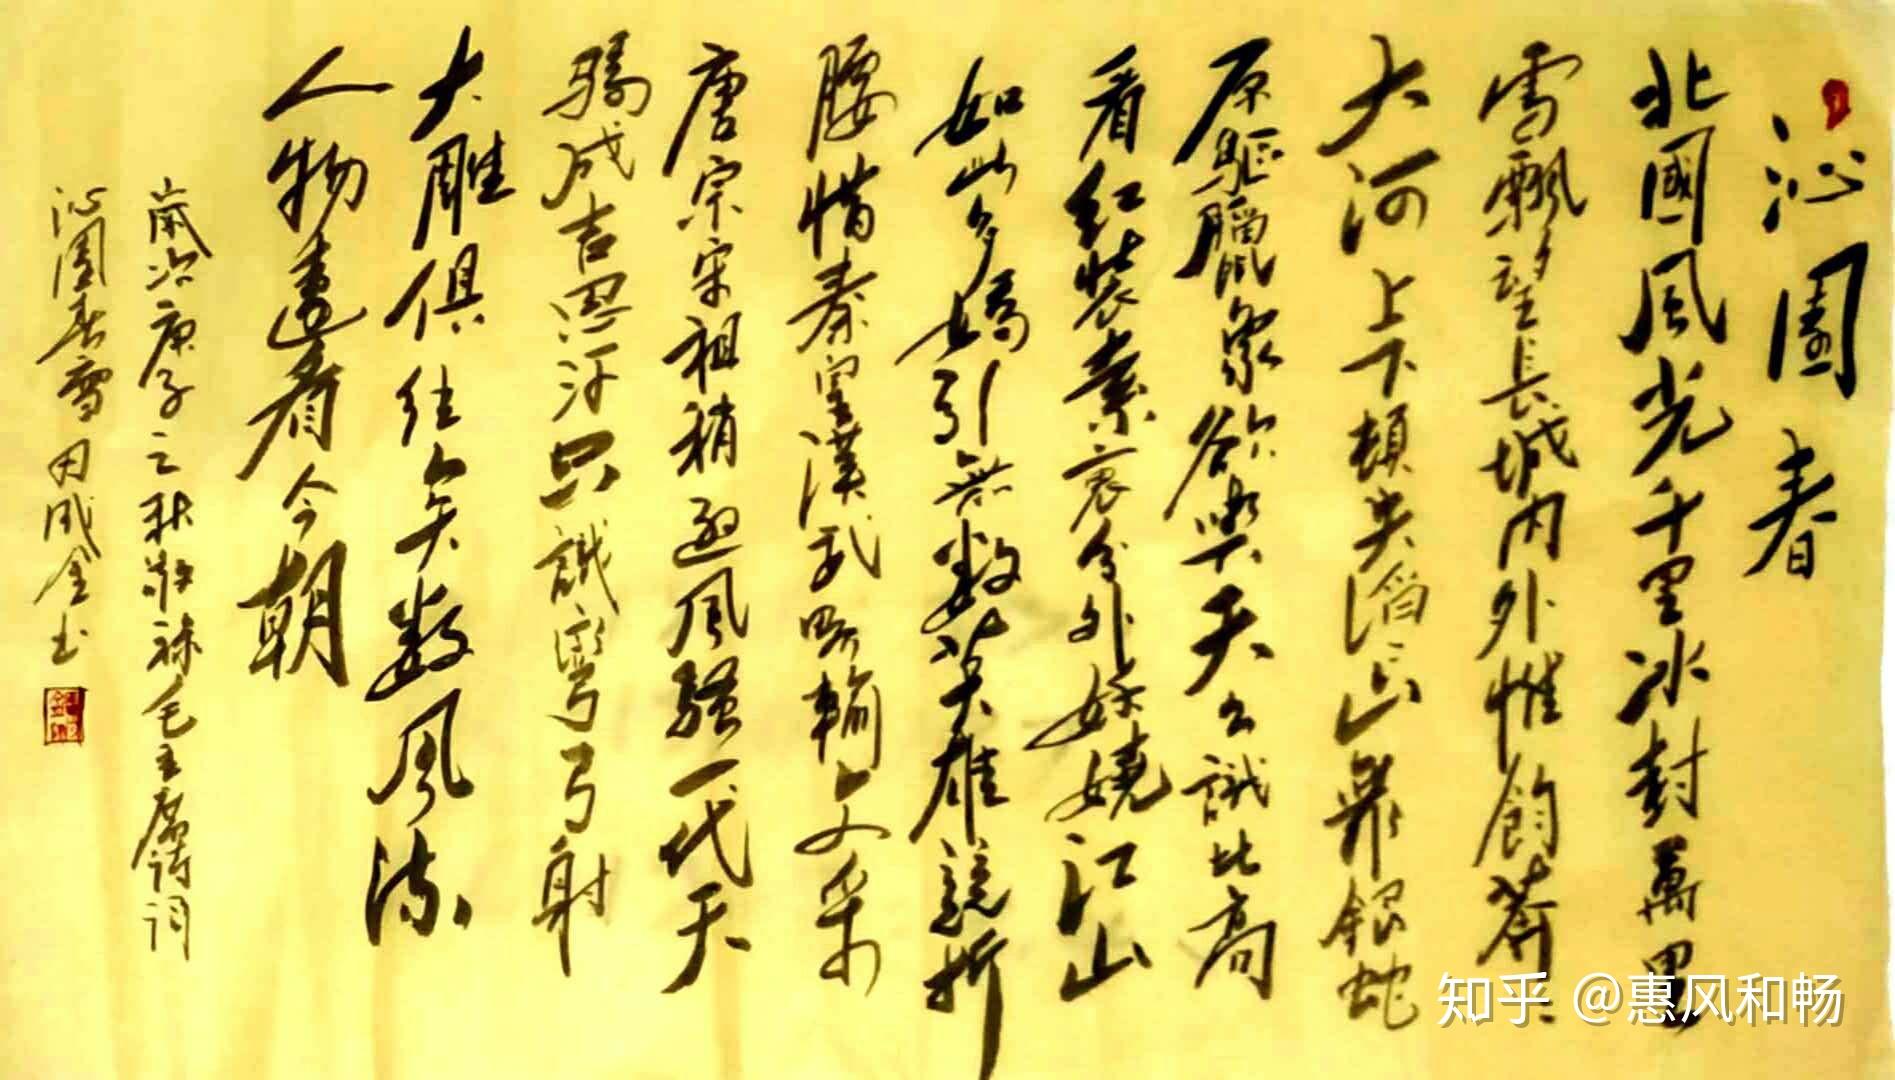 沁園春
北國風光千里冰封萬里
雪飄望長城内外惟餘莽〻
大河上下頓失滔〻山舞銀蛇
原驅臘象欲與天公試比高
看红裝素裹分外妖嬈江山
如此多嬌引無数英雄競折
腰惜秦皇漢武略輸文采
唐宗宋祖稍遜風騷一代天
驕成吉思汗只識彎弓射
大雕俱往矣数風流
人物還看今朝
歲次庚子之秋敬録毛主席詩詞
沁園春雪田成金书
知乎 @惠风和畅